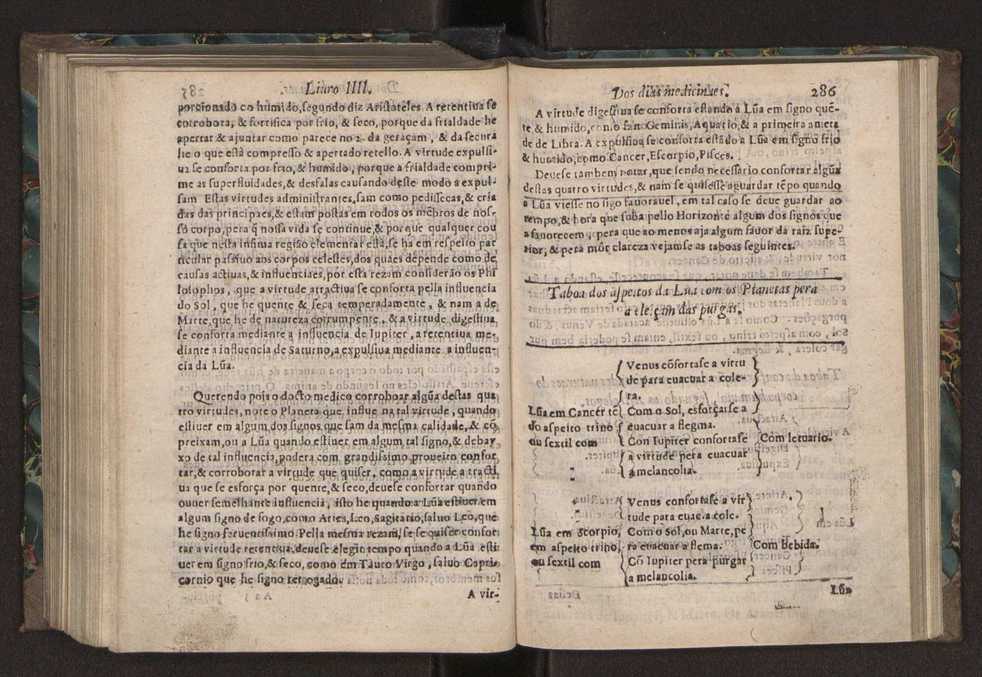 Liuro IIII.
porcionado co humido, segundo diz Aristoteles. A retentiua se
corrobora, & fortifica por frio, & seco, porque da frialdade he
apertar & ajuntar como parece no 2. da geraçam, & da secura
he o que està compresso & apertado retello. A virtude expulsi-
ua se conforta por frio, & humido, porque a frialdade compri-
me as superfluidades, & desfalas causando deste modo a expul-
sam. Estas virtudes administrantes, sam como pedissecas, & cria
das das principaes, & estam postas em todos os mẽbros de nos-
so corpo, pera q̃ nossa vida se continue, & porque qualquer cou
sa que nesta infima regiao elementar està, se ha em respeito par
ticular passiuo aos corpos celestes, dos quaes depende como de
causas actiuas, & influenciaes, por esta rezam considerão os Phi
losophos, que a virtude attractiua se conforta pella influencia
do Sol, que he quente & seca temperadamente, & nam a de
Marte, que he de natureza corrumpente, & a virtude digestiua
se conforta mediante a influencia de Iupiter, a retentiua me-
diante a influencia de Saturno, a expulsiua mediante a influen-
cia da Lũa.
Querendo pois o docto medico corroboar algũa destas qua
tro virtudes, note o Planeta que influe na tal virtude, quando
estiuer em algum dos signos que sam da mesma calidade, & cõ
preixam, ou a Lũa quando estiuer em algum tal signo, & debay
xo de tal influencia, podera com grandissimo proueito confor
tar, & corroborar a virtude que quiser, como a virtude atracti
ua que se esforça por quente, & seco, deuese confortar quando
ouuer semelhante influencia, isto he quando a Lũa estiuer em
algum signo de fogo, como Aries, Leo, Sagitario, saluo Leo, que
he signo feruentissimo. Pella mesma rezam, se se quiser confor
tar a virtude retentiua, deuese elegir tempo quando a Lũa esti
uer em signo frio, & seco, como em Tauro Virgo, saluo Capri
cornio que he signo retrogado.
A vir-
Dos dias medicinaes.
286
A virtude digestiua se conforta estando a Lũa em signo quẽ-
te & humido, como sam Geminis, Aquario, & a primeira ameta
de de Libra. A expulsiua se conforta estãdo a Lũa em signo frio
& humido, como Cancer, Escorpio, Pisces.
Deuese tambem notar, que sendo necessario confortar algũa
destas quatro virtudes, & nam se quisesse aguardar tẽpo quando
a Lũa viesse no sigo fauorauel, em tal caso se deue guardar ao
tempo, & hora que suba pello Horizonte algum dos signos que
a fauorecem, pera que ao menos aja algum fauor da raiz supe-
rior, & pera môr clareza vejamse as taboas seguintes.
Taboa dos aspeitos da Lũa com os Planetas pera
a eleiçam das purgas.
Lũa em Cancer
do aspeito trino
ou sextil com
Venus cõfortase a virtu
de para euacuar a cole-
ra.
Com o Sol, esforçaise a
euacuar a flegma.
Con Iupiter confortase
a virtude pera euacuar
a melancolia.
Com letuario.
Lũa em Scorpio,
em aspeito trino,
ou sextil com
Venus confortase a vir
tude para euac. a cole.
Com o Sol, ou Marte, pe
ra euacuar a flema.
Cõ Iupiter pera purgar
a melancolia.
Com bebida.
Lũa